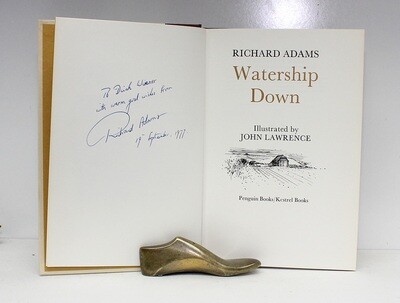 To
with warm good wishes from
Richard Adams
19th September 1977.
RICHARD ADAMS
Watership
Down
Illustrated by
JOHN LAWRENCE
Penguin Books/Kestrel Books